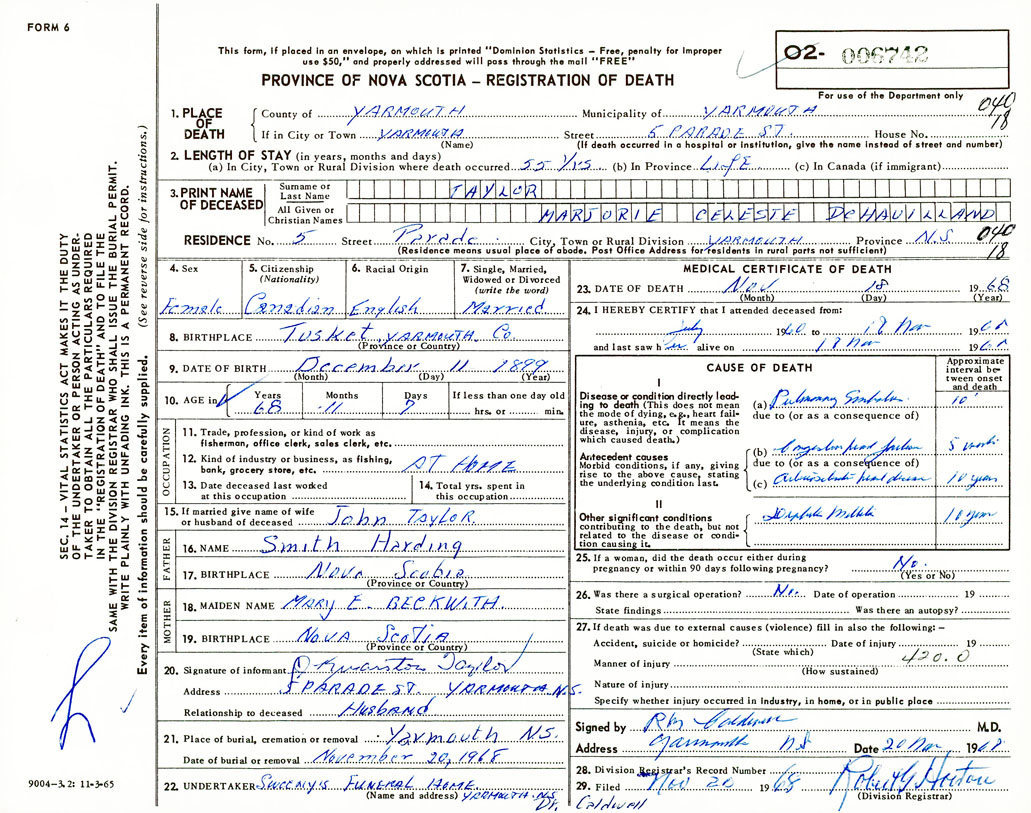 FORM 6
This form, if placed in an envelope, on which is printed "Dominion Statistics – Free, penalty for improper
use $50," and properly addressed will pass through the mail "FREE"
O2- 006742
PROVINCE OF NOVA SCOTIA – REGISTRATION OF DEATH
For use of the Department only
040
18
1. PLACE OF DEATH
County of YARMOUTH Municipality of YARMOUTH
If in City or Town YARMOUTH Street 5 PARADE ST. House No.
(Name) (If death occurred in a hospital or institution, give the name instead of street and number)
2. LENGTH OF STAY (in years, months and days)
(a) In City, Town or Rural Division where death occurred 55 Yrs (b) In Province LIFE (c) In Canada (if immigrant)
3. PRINT NAME OF DECEASED
Surname or Last Name TAYLOR
All Given or Christian Names MARJORIE CELESTE DEHAVILLAND
RESIDENCE No. 5 Street Parade City, Town or Rural Division YARMOUTH Province N.S.
040
18
(Residence means usual place of abode. Post Office Address for residents in rural parts not sufficient)
4. Sex
Female
5. Citizenship (Nationality)
Canadian
6. Racial Origin
English
7. Single, Married, Widowed or Divorced (write the word)
Married
8. BIRTHPLACE Tusket, YARMOUTH Co.
(Province or Country)
9. DATE OF BIRTH December 11 1899
(Month) (Day) (Year)
10. AGE in Years 68 Months 11 Days 7 If less than one day old hrs. or min.
OCCUPATION
11. Trade, profession, or kind of work as
fisherman, office clerk, sales clerk, etc.
12. Kind of industry or business, as fishing,
bank, grocery store, etc. AT HOME
13. Date deceased last worked
at this occupation
14. Total yrs. spent in
this occupation
15. If married give name of wife
or husband of deceased John TAYLOR.
FATHER
16. NAME Smith Harding
17. BIRTHPLACE Nova Scotia
(Province or Country)
MOTHER
18. MAIDEN NAME MARY E. BECKWITH.
19. BIRTHPLACE NOVA SCOTIA
(Province or Country)
20. Signature of informant Taylor
Address 5 PARADE ST. YARMOUTH N.S.
Relationship to deceased HUSBAND
21. Place of burial, cremation or removal Yarmouth N.S.
Date of burial or removal November 20, 1968
22. UNDERTAKER SWEENY'S FUNERAL HOME.
(Name and address) YARMOUTH N.S.
MEDICAL CERTIFICATE OF DEATH
23. DATE OF DEATH Nov 18 1968
(Month) (Day) (Year)
24. I HEREBY CERTIFY that I attended deceased from:
July 1960 to 18 Nov 1968
and last saw her alive on 18 Nov 1968
CAUSE OF DEATH
Approximate interval between onset and death
I
Disease or condition directly leading
to death (This does not mean
the mode of dying, e.g., heart failure,
asthenia, etc. It means the
disease, injury, or complication
which caused death.)
(a) Pulmonary Embolus 10'
due to (or as a consequence of)
Antecedent causes
Morbid conditions, if any, giving
rise to the above cause, stating
the underlying condition last.
(b) Congestive heart failure 5 weeks
due to (or as a consequence of)
(c) Arteriosclerotic heart disease 10 years
II
Other significant conditions
contributing to the death, but not
related to the disease or condition
causing it.
Diabetes Mellitus 10 years
25. If a woman, did the death occur either during
pregnancy or within 90 days following pregnancy? No.
(Yes or No)
26. Was there a surgical operation? No. Date of operation 19
State findings Was there an autopsy?
27. If death was due to external causes (violence) fill in also the following: –
Accident, suicide or homicide? Date of injury 19
(State which)
420.0
Manner of injury
(How sustained)
Nature of injury
Specify whether injury occurred in Industry, in home, or in public place
Signed by R M Caldwell M.D.
Address Yarmouth NS Date 20 Nov, 1968
28. Division Registrar's Record Number
29. Filed Nov 20 1968 Robert G Horton
(Division Registrar)
Dr. Caldwell
SEC. 14 – VITAL STATISTICS ACT MAKES IT THE DUTY
OF THE UNDERTAKER OR PERSON ACTING AS UNDERTAKER
TO OBTAIN ALL THE PARTICULARS REQUIRED
IN THE "REGISTRATION OF DEATH" AND TO FILE THE
SAME WITH THE DIVISION REGISTRAR WHO SHALL ISSUE THE BURIAL PERMIT.
WRITE PLAINLY WITH UNFADING INK. THIS IS A PERMANENT RECORD.
Every item of information should be carefully supplied. (See reverse side for instructions.)
9004–3.2: 11-3-65